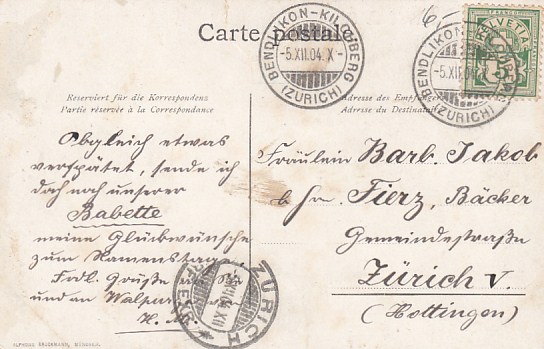 Carte postale
BENDLIKON-KILCHBERG
-5.XII.04.X-
(ZÜRICH)
BENDLIKON-
-5.XII.04
(ZÜRICH)
HELVETIA
5
Reserviert für die Korrespondenz
Partie réservée à la Correspondance
Adresse des Empfängers
Adresse du Destinataire
Obgleich etwas
verspätet, sende ich
doch noch unserer
Babette
meine Glückwünsche
zum Namenstag.
Frdl. Grüße an Sie
und an Walpur
H. M.
Fräulein Barb. Jakob
b/ Hr. Fierz, Bäcker
Gemeindestraße
Zürich V.
(Hottingen)
ZÜRICH
ALPHONS BRUCKMANN, MÜNCHEN.